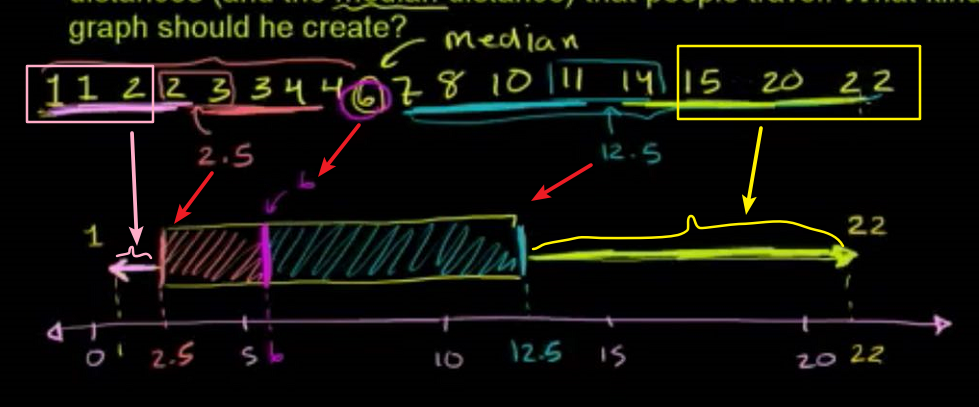 distances (and the median distance) that people travel. What kind
graph should he create?
median
1 1 2 2 3 3 4 4 6 7 8 10 11 14 15 20 22
2.5 6 12.5
1 22
0 1 2.5 5 6 10 12.5 15 20 22